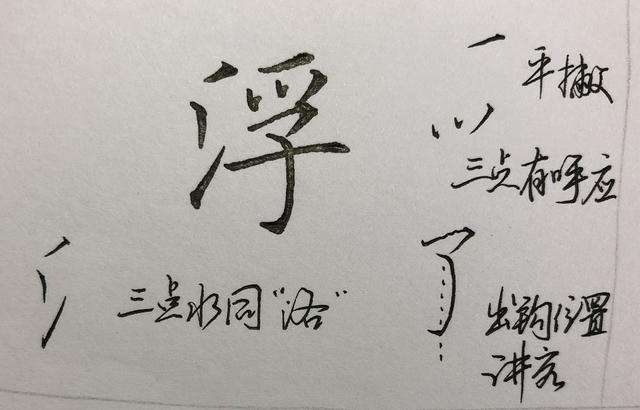 浮
平撇
三点有呼应
三点水同“洛”
出钩位置
讲究